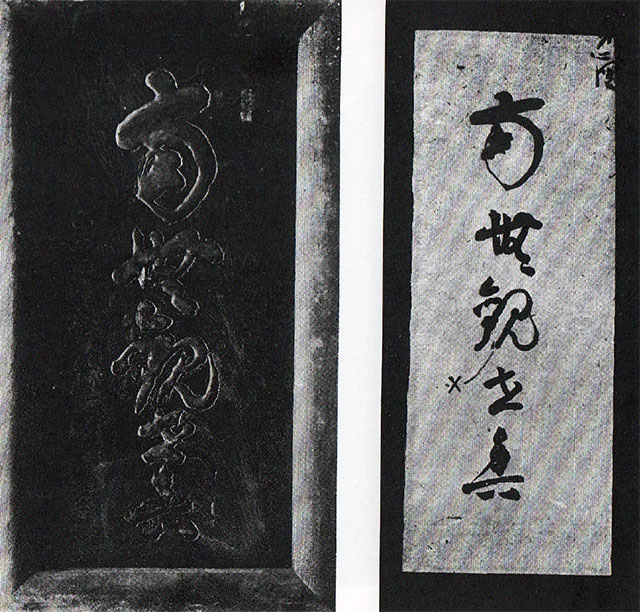 南無観世音
南無観世音
×